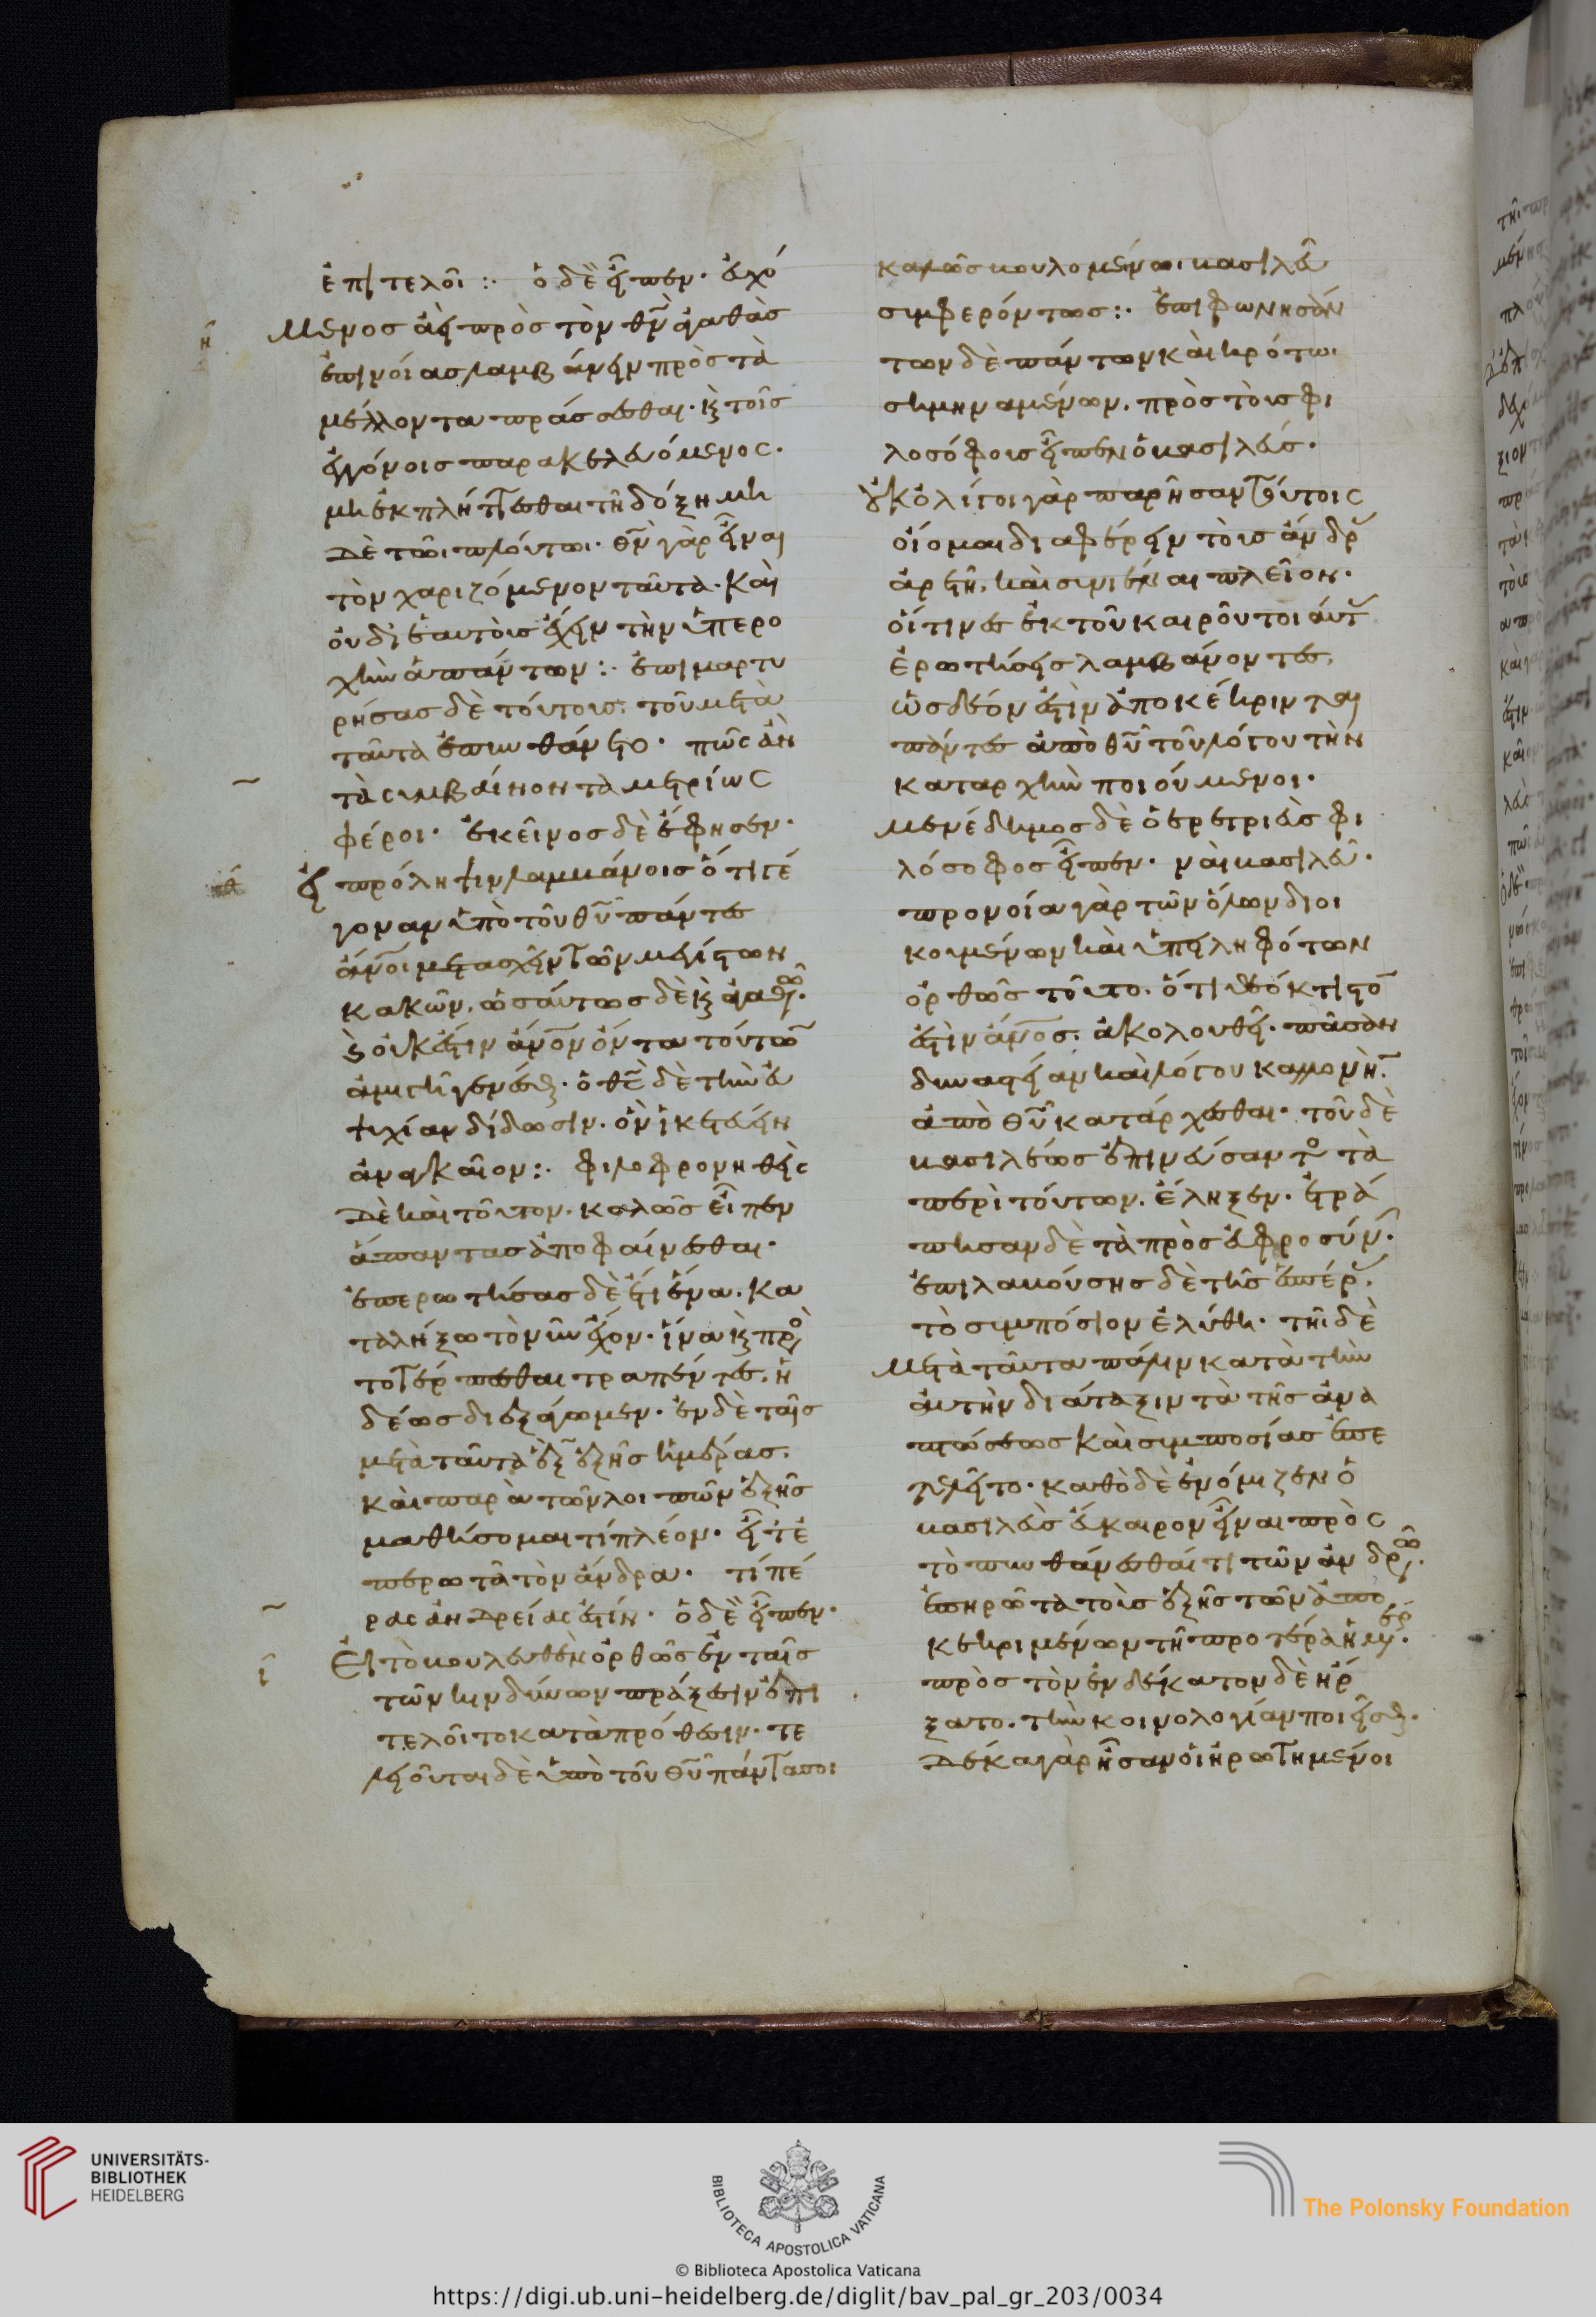 ἐπιτελοῖ :· ὁ δὲ εἶπεν· εὐχό
μενος ἀεὶ πρὸς τὸν θν̅ ἀγαθὰς
ἐπινοίας λαμβάνειν πρὸς τὰ
μέλλοντα πράσσεσθαι· κ̀ τοῖς
ἐγγόνοις παρακελευόμενος·
μὴ ἐκπλήττεσθαι τῆ δόξη μη
δὲ τῶι πλούτωι· θν̅ γὰρ εἶναι
τὸν χαριζόμενον ταῦτα· καὶ
οὐ δι ἑαυτοὺς ἔχειν τὴν ὑπερο
χὴν ἁπάντων :· ἐπιμαρτυ
ρήσας δὲ τούτοις· τοῦ μετὰ
ταῦτα ἐπυνθάνετο· πῶς ἂν
τὰ συμβαίνοντα μετρίως
φέροι· ἐκεῖνος δὲ ἔφησεν·
εἰ πρόληψιν λαμβάνοις ὅτι γέ
γοναν ὑπὸ τοῦ θυ̅ πάντες
ἄνο̅ι μετασχεῖν τῶν μεγίστων
κακῶν, ὡσαύτως δὲ κ̀ ἀγαθῶν·
κ̀ οὐκ ἔστιν ἄνο̅ν ὄντα τούτων
ἀμιγῆ γενέσθαι· ὁ θς̅ δὲ τὴν εὐ
ψυχίαν δίδωσιν· ὃν ἱκετεύειν
ἀναγκαῖον :· φιλοφρονηθεὶς
δὲ καὶ τοῦτον· καλῶς εἶπεν
ἅπαντας ἀποφαίνεσθαι·
ἐπερωτήσας δὲ ἔτι ἕνα· κα
ταλήξω τὸ νῦν ἔχον· ἵνα κ̀ πρὸς
τὸ τέρπεσθαι τραπέντες· ἡ
δέως διεξάγωμεν· ἐν δὲ ταῖς
μετὰ ταῦτα ἓξ ἑξῆς ἡμέραις·
καὶ παρὰ τῶν λοιπῶν ἑξῆς
μαθήσομαι τί πλέον· εἶτ ἐ
περωτᾶ τὸν ἄνδρα· τί πέ
ρας ἀνδρείας ἐστίν· ὁ δὲ εἶπεν·
Εἰ τὸ βουλευθὲν ὀρθῶς ἐν ταῖς
τῶν κινδύνων πράξεσιν ἐπι
τελοῖτο κατὰ πρόθεσιν· τε
λειοῦνται δὲ ὑπὸ τοῦ θυ̅ πάντα σοι
καλῶς βουλομένωι βασιλεῦ
συμφερόντως :· ἐπιφωνησάν
των δὲ πάντων καὶ κρότω
σημηναμένων· πρὸς τοὺς φι
λοσόφους εἶπεν ὁ βασιλεύς·
οὐκ ὀλίγοι γὰρ παρῆσαν τούτοις
οἴομαι διαφέρειν τοὺς ἄνδρ
ἀρετῆ· καὶ συνιέναι πλεῖον·
οἵτινες ἐκ τοῦ καιροῦ τοιαύτ
ἐρωτήσεις λαμβάνοντες·
ὡς δέον ἐστὶν ἀποκέκρινται
πάντες ἀπὸ θυ̅ τοῦ λόγου τὴν
καταρχὴν ποιούμενοι·
μενέδημος δὲ ὁ ἐρετριεὺς φι
λόσοφος εἶπεν· ναὶ βασιλεῦ·
προνοία γὰρ τῶν ὅλων διοι
κουμένων καὶ ὑπειληφότων
ὀρθῶς τοῦτο· ὅτι θεόκτιστό
ἐστὶν ἄνος̅· ἀκολουθεῖ· πᾶσαν
δυναστείαν καὶ λόγου καλλονὴν
ἀπὸ θυ̅ κατάρχεσθαι· τοῦ δὲ
βασιλέως ἐπινεύσαντος τὰ
περὶ τούτων· ἔληξεν· ἐτρά
πησαν δὲ τὰ πρὸς εὐφροσύν·
ἐπιλαβούσης δὲ τῆς ἑσπέρ·
τὸ συμπόσιον ἐλύθη· τῆι δὲ
μετὰ ταῦτα πάλιν κατὰ τὴν
αὐτὴν διάταξιν τὰ τῆς ἀνα
πτώσεως καὶ συμποσίας ἐπε
τελεῖτο· καθὸ δὲ ἐνόμιζεν ὁ
βασιλεὺς εὔκαιρον εἶναι πρὸς
τὸ πυνθάνεσθαί τι τῶν ἀνδρῶν·
ἐπηρώτα τοὺς ἑξῆς τῶν ἀπο
κεκριμένων τῆ προτέρα ἡμέρ·
πρὸς τὸν ἑνδέκατον δὲ ἤρ
ξατο· τὴν κοινολογίαν ποιεῖσθ·
δέκα γὰρ ἦσαν οἱ ἠρωτημένοι
UNIVERSITÄTS-
BIBLIOTHEK
HEIDELBERG
BIBLIOTECA APOSTOLICA VATICANA
The Polonsky Foundation
© Biblioteca Apostolica Vaticana
https://digi.ub.uni-heidelberg.de/diglit/bav_pal_gr_203/0034